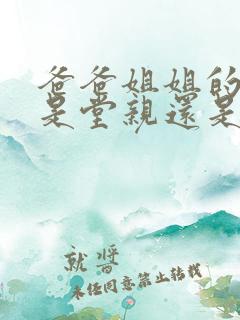 爸爸姐姐的
是堂親還是
就醬
未經同意禁止轉載